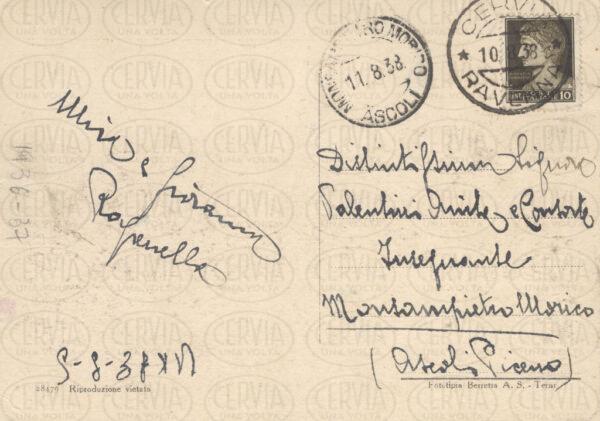 MONSAMPIETRO MORICO
11.8.38
ASCOLI
CERVIA
10.8.38
RAVENNA
10
Mira
e Giovanni
Raffaella
1936-37
Distintissimo Signore
Valentini Anite e Consorte
Insegnante
Monsampietro Morico
(Ascoli Piceno)
9-8-38 XVI
28479 Riproduzione vietata
Fototipia Berretta A. S. - Terni
CERVIA
UNA VOLTA